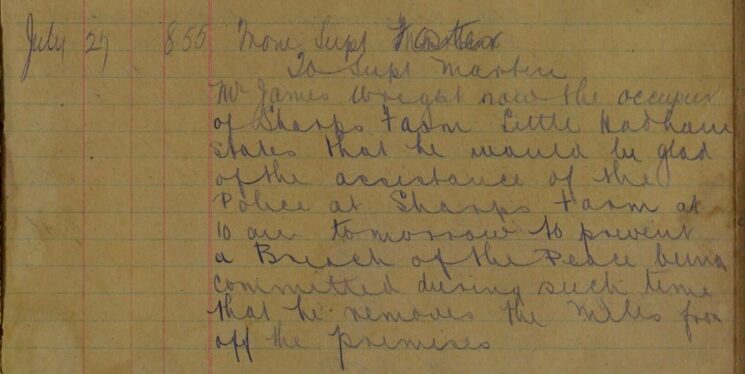 July 27 855 From Supt Foster
To Supt Martin
Mr James Wright now the occupier
of Sharps Farm Little Hadham
states that he would be glad
of the assistance of the
Police at Sharps Farm at
10 am tomorrow to prevent
a Breach of the Peace being
committed during such time
that he removes the from
off the premises